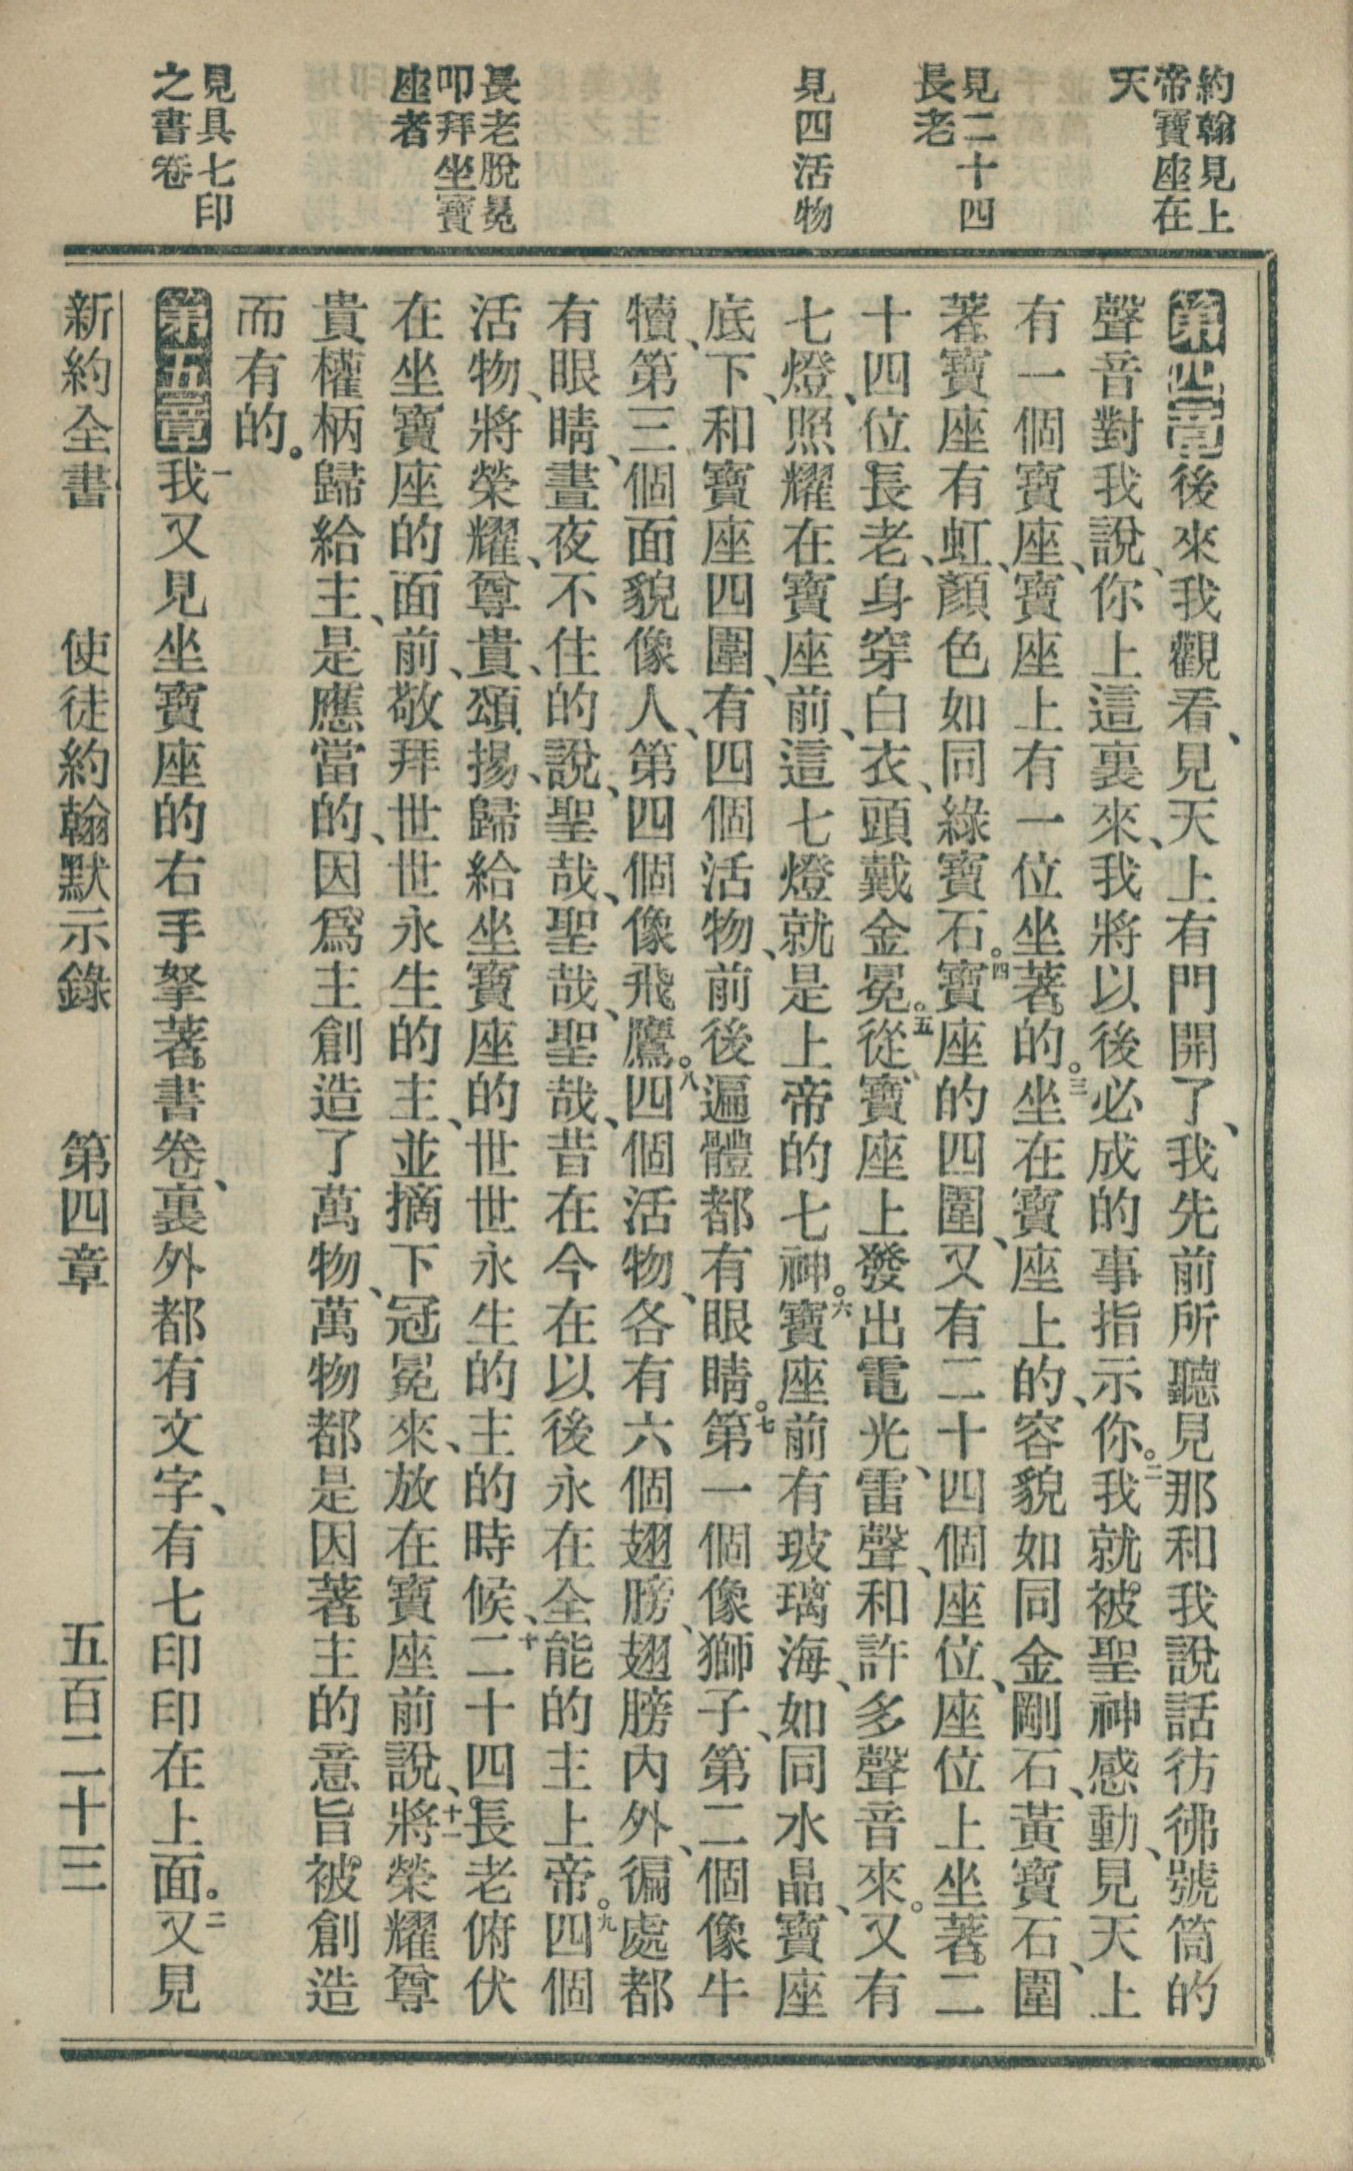 約翰見上
帝寶座在
天
見二十四
長老
見四活物
長老脫冕
叩拜坐寶
座者
見具七印
之書卷
第四章後來我觀看、見天上有門開了、我先前所聽見那和我說話彷彿號筒的
聲音對我說、你上這裏來、我將以後必成的事指示你。二我就被聖神感動、見天上
有一個寶座、寶座上有一位坐著的。三坐在寶座上的、容貌如同金剛石、黃寶石、圍
著寶座有虹、顏色如同綠寶石。四寶座的四圍、又有二十四個座位、座位上坐著二
十四位長老、身穿白衣、頭戴金冕。五從寶座上發出電光、雷聲、和許多聲音來。又有
七燈、照耀在寶座前、這七燈就是上帝的七神。六寶座前有玻璃海、如同水晶、寶座
底下、和寶座四圍、有四個活物、前後遍體都有眼睛。七第一個像獅子、第二個像牛
犢、第三個面貌像人、第四個像飛鷹。八四個活物、各有六個翅膀、翅膀內外、徧處都
有眼睛、晝夜不住的說、聖哉、聖哉、聖哉、昔在今在以後永在全能的主上帝。九四個
活物、將榮耀、尊貴、頌揚、歸給坐寶座的世世永生的主的時候、十二十四長老俯伏
在坐寶座的面前、敬拜世世永生的主、並摘下冠冕來、放在寶座前說、十一將榮耀尊
貴權柄歸給主、是應當的、因爲主創造了萬物、萬物都是因著主的意旨被創造
而有的。
第五章一我又見坐寶座的右手拏著書卷、裏外都有文字、有七印印在上面。二又見
新約全書　使徒約翰默示錄　第四章　五百二十三